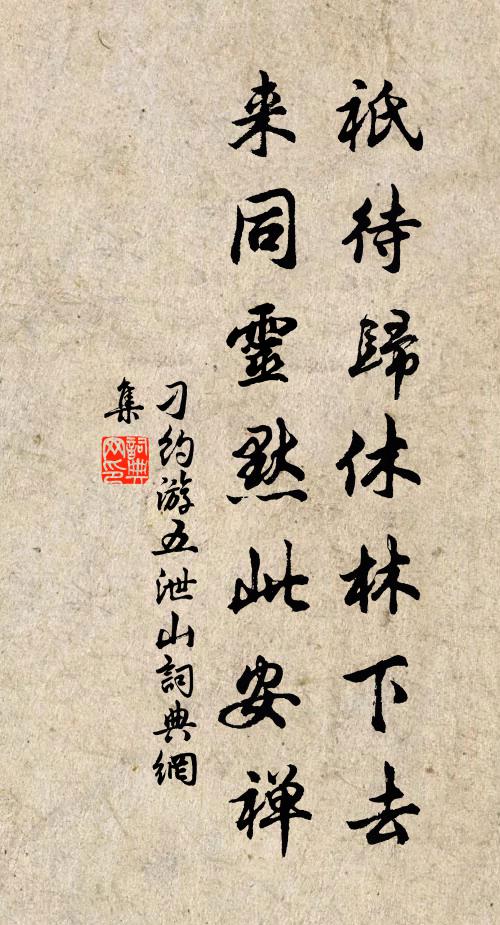 祇待歸休林下去
来同靈默此安禅
刁約游五泄山詞典網
集
詞典
网印